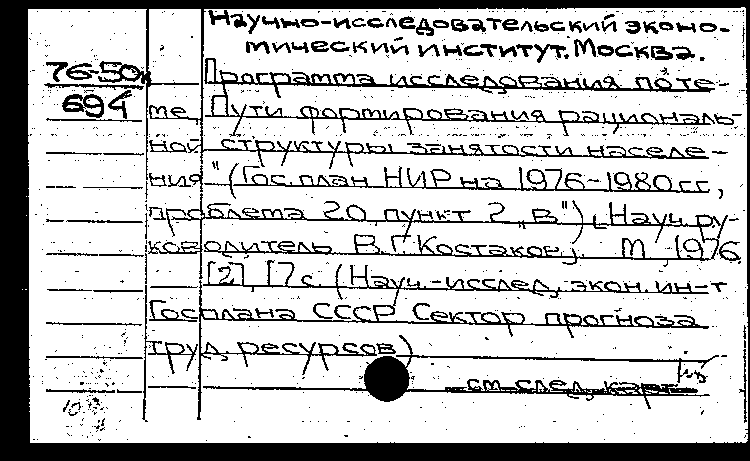 Научно-исследовательский эконо-
мический институт. Москва.
76-50к Программа исследования по те-
694 ме „Пути формирования рациональ-
ной структуры занятости населе-
ния" (Гос. план НИР на 1976-1980 гг,
проблема 20 пункт 2 „в") [Науч. ру-
ководитель В. Г. Костаков]. М, 1976.
[2], 17 с. (Науч.-исслед. экон. ин-т
Госплана СССР Сектор прогноза
труд. ресурсов)
см след. карт